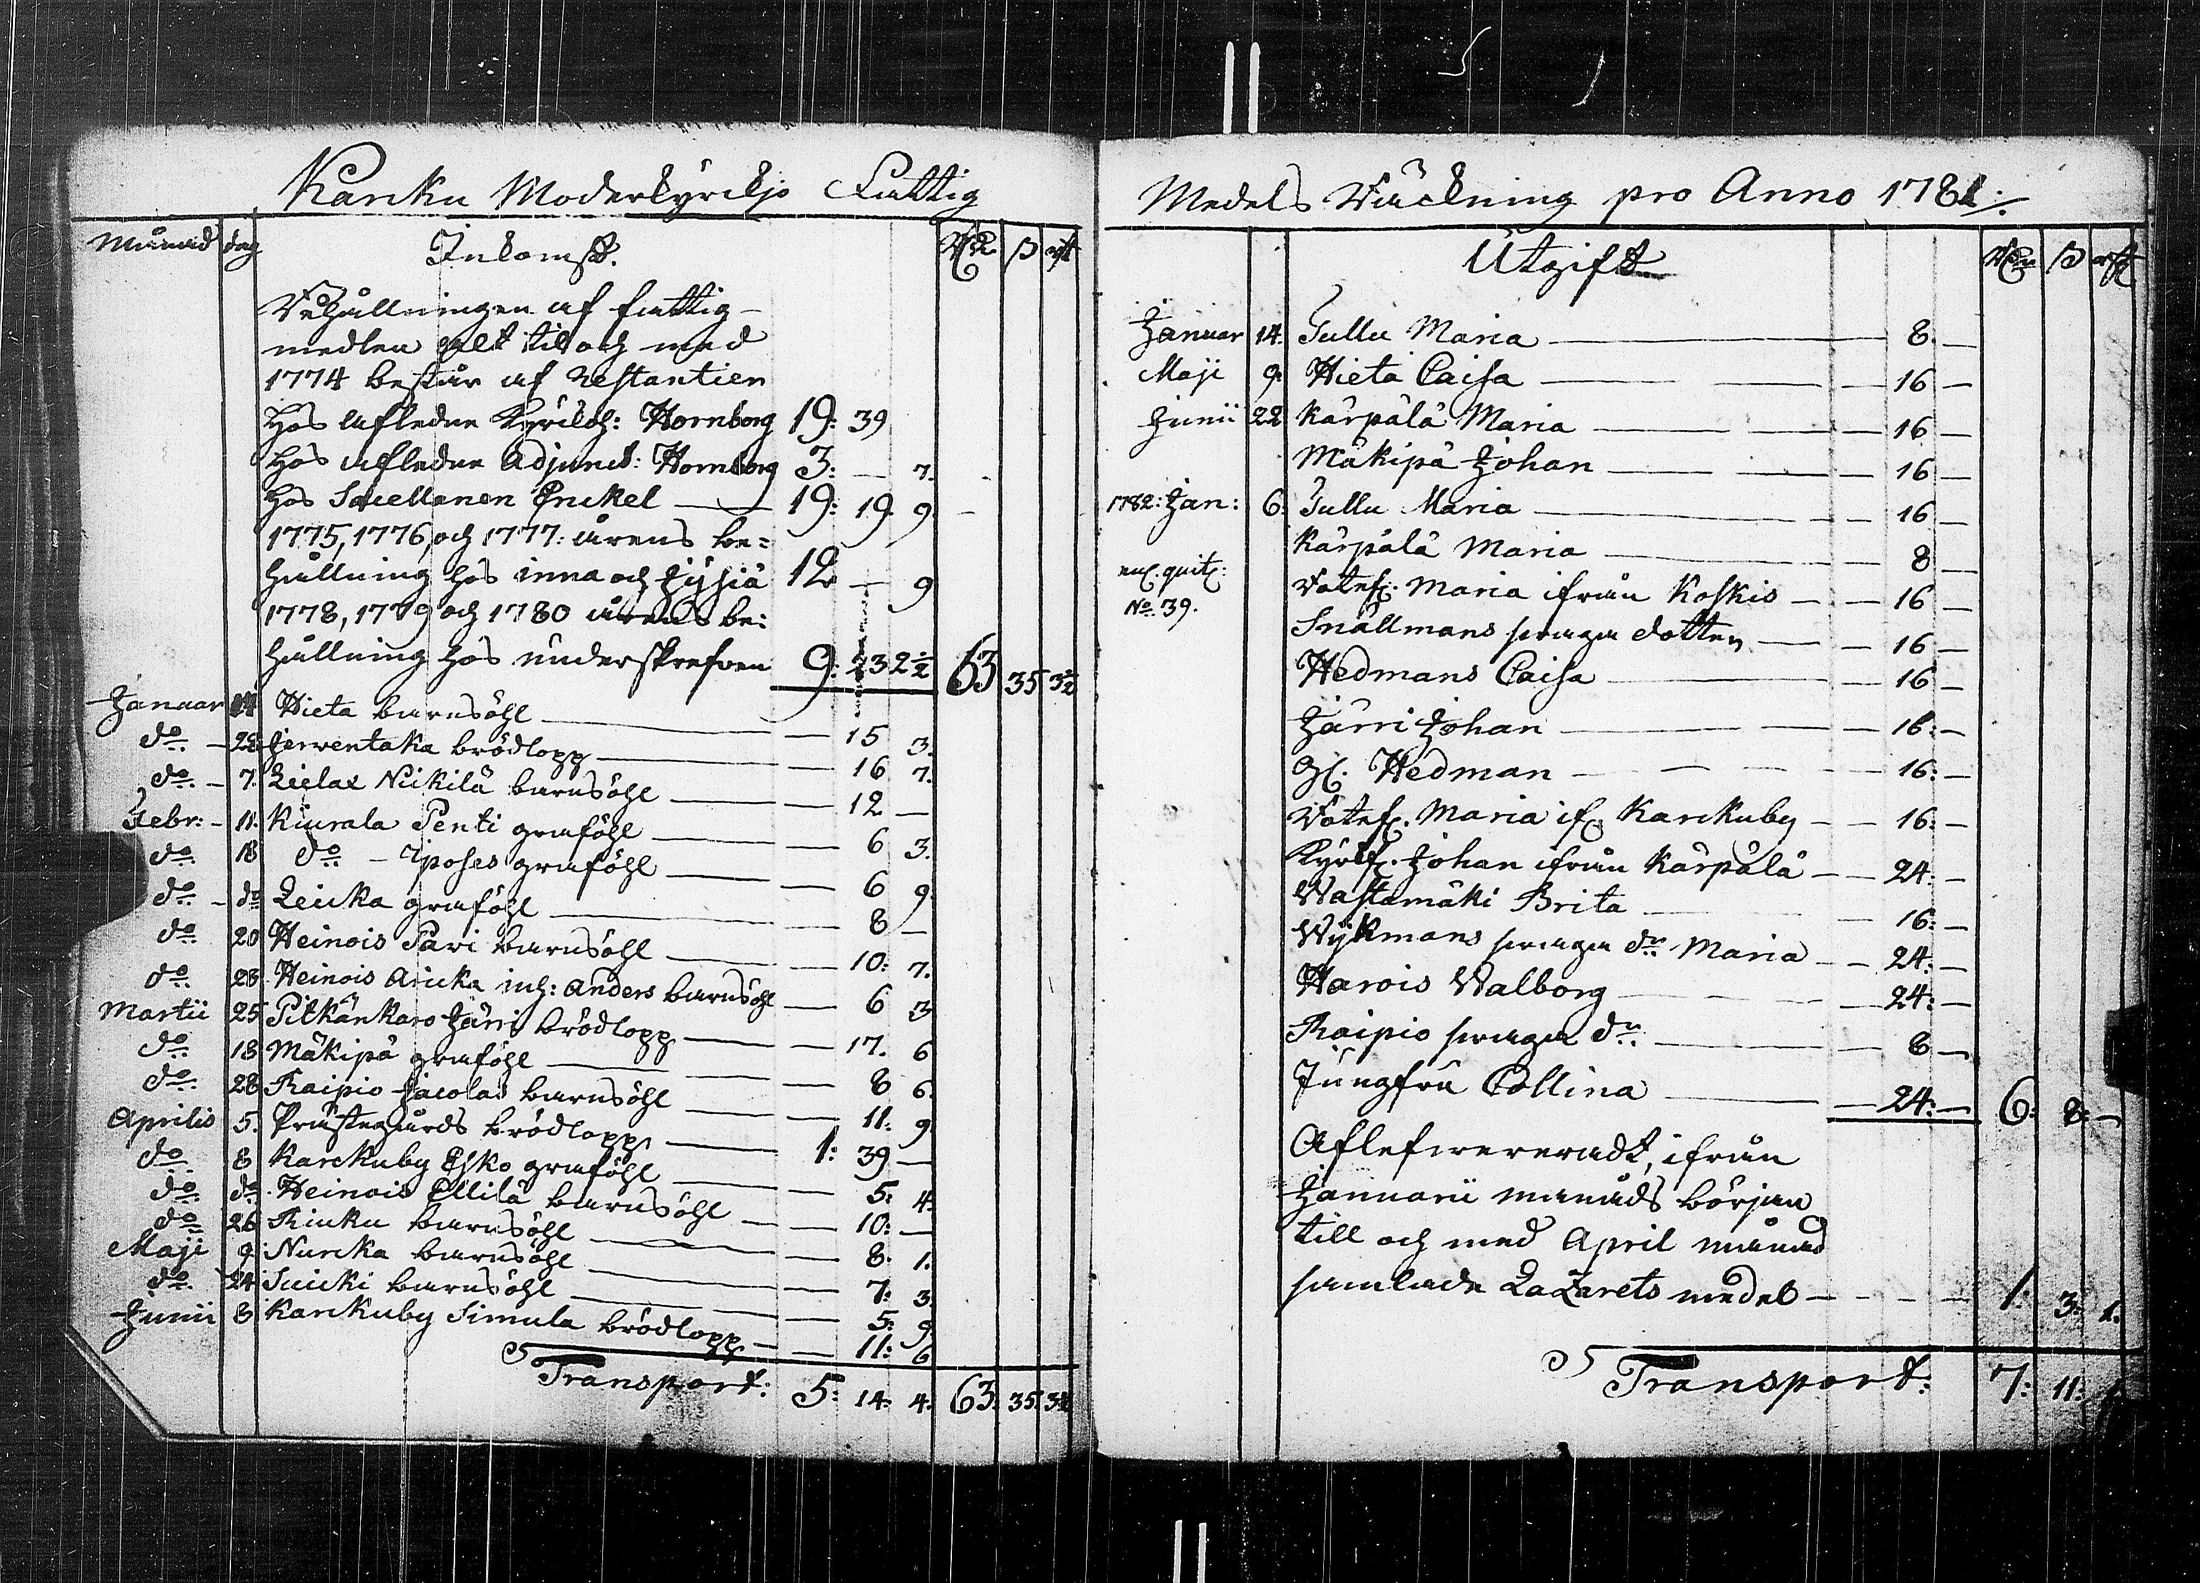 Karku Moderkyrckjo Fattig
Månad dag Inkomst. Rdr ß rst
Behållningen af fattig-
medlen alt til och med
1774 består af Restantien
hos afledne Kyrckh: Hornborg 19: 39
hos afledne Adjunct: Hornborg 3: — 7.
hos Snellmanen Enckel — 19: 19 9.
1775, 1776, och 1777: årens be=
hållning hos inna och 12 — 9
1778, 1779 och 1780 årens be:
hållning hos underskrefven 9: 23 2½ 63 35 3½
Januar 14 Hieta barnsöhl — 15 3.
do — 28 Jerventaka brödlopp — 16 7.
do — 7. Lielax Nickilä barnsöhl — 12 —
Febr: — 11. Kiurala Penti grafölhl — 6 3.
do 18 do — Iposes graföhl — 6 9.
do — do Leicka graföhl — 8 —
do 20 Heinois Pari barnsöhl — 10: 7.
do 28 Heinois Aricka inh: Anders barnsöhl — 6 3
Martii 25 Pitkänkaro Järri brödlopp — 17. 6
do 18 Mäkipä graföhl — 8 6.
do 28 Raipio Jacolas barnsöhl — 11: 9.
Aprilis 5. Prästegårds brödlopp — 1: 39 —
do 8 Karckuby Esko graföhl — 5: 4.
do do Heinois Ellilä barnsöhl — 10: —
do 26 Rinku barnsöhl — 8: 1.
Maji 9. Nurcka barnsöhl — 7: 3.
do 24 Suicki barnsöhl — 5: 9.
Junii 8 Karckuby Simula brödlopp — 11: 6
Transport: 5: 14: 4: 63: 35. 3½
Medels Räckning pro Anno 1781:/.
Utgift Rdr ß rst
Januar 14. Tullu Maria — 8. —
Maji 9. Hieta Caisa — 16 —
Junii 22 Kärpälä Maria — 16 —
Mäkipä Johan — 16 —
1782: Jan: 6. Tullu Maria — 16 —
Kärpälä Maria — 8 —
enl. quit:
No 39.
Maria ifrån Koskis — 16 —
Snällmans svaga dotter — 16 —
Hedmans Caisa — 16 —
Järri Johan — 16: —
Gl. Hedman — 16: —
Maria if. Karckuby — 16: —
Johan ifrån Kärpälä — 24: —
Wastamäki Brita — 16: —
Wijkmans svaga dr Maria — 24: —
Harois Walborg — 24: —
Raipio svaga dr — 8 —
Jungfru Collina — 24: — 6: 8: —
Aflefwereradt, ifrån
Januarii månads början
till och med April månad
samlade Lazarets medel — 1: 3: 1.
Transport: 7: 11: